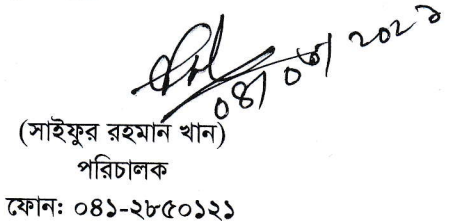 ০৪/০৩/২০২১
(সাইফুর রহমান খান)
পরিচালক
ফোন: ০৪১-২৮৫০১২১